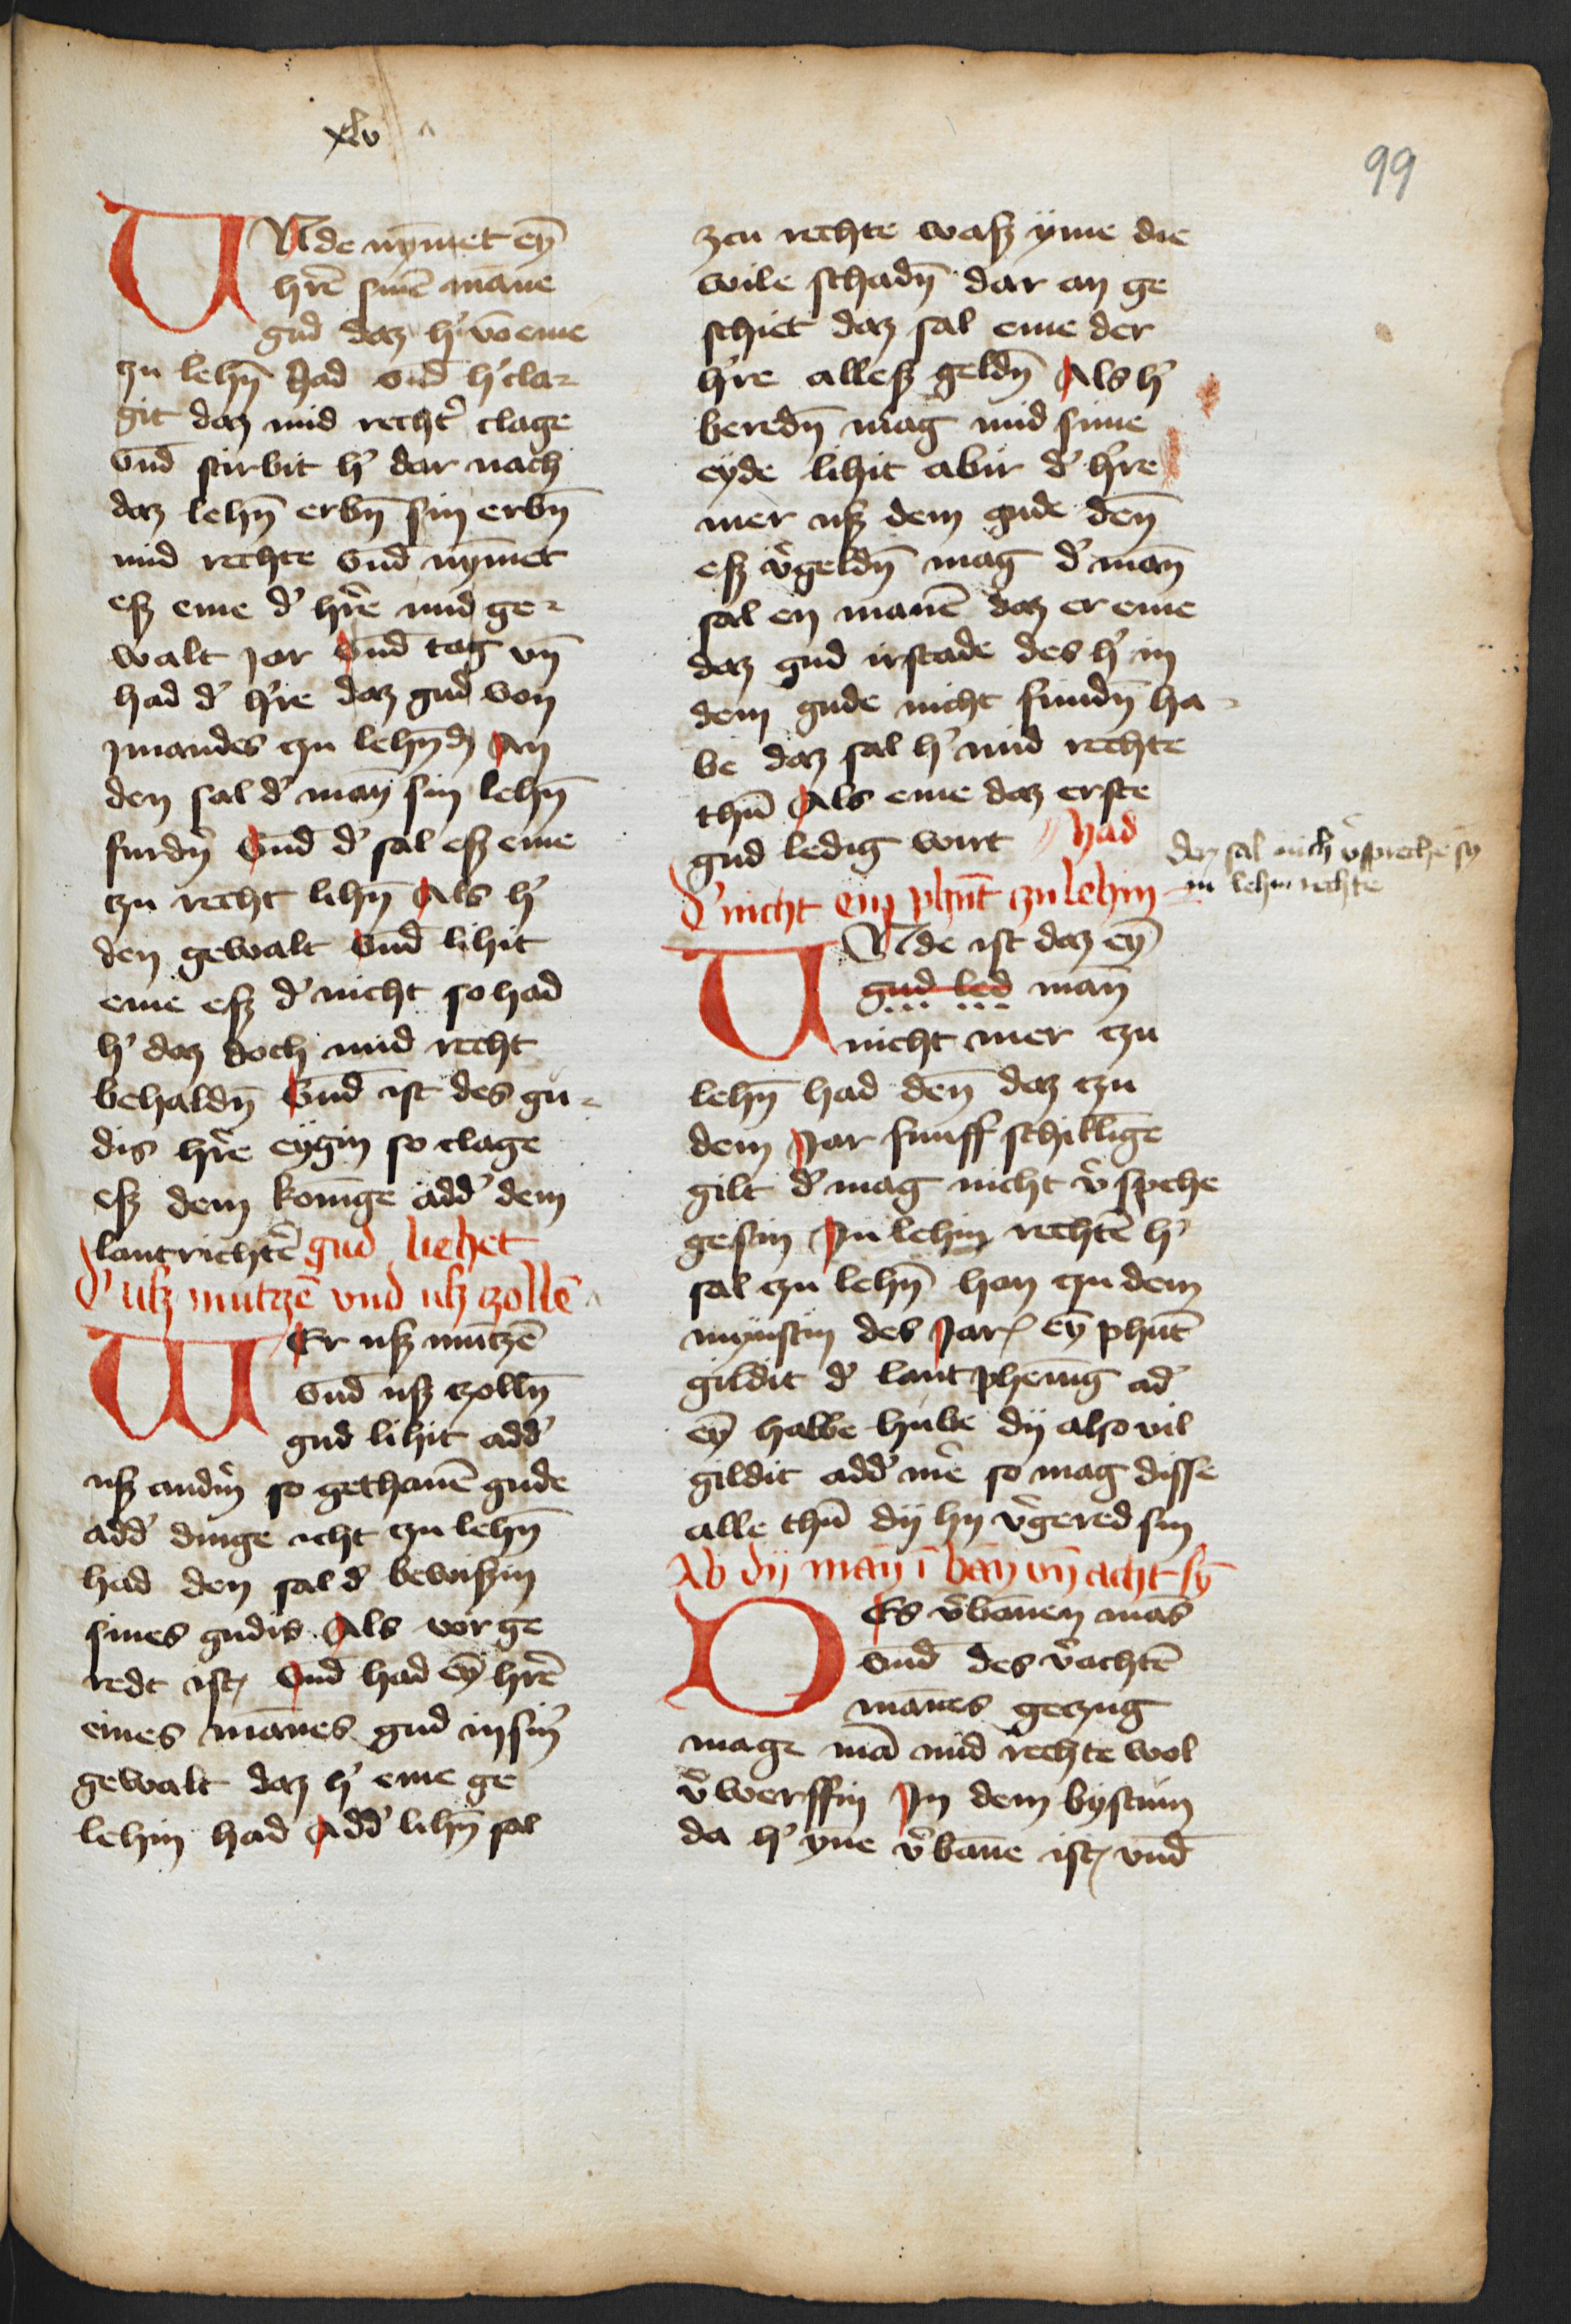 xlv
99
UNde nȳmet eȳ
hrē sinē māne
gud daz h' vō eme
zu lehn̄ had vnd̄ h' cla-
git daz mid recht' clage
vnd̄ stirbit h' dar nach
daz lehn̄ erbn̄ sin erbn̄
mid rechte vnd̄ nȳmet
eß eme d' hr̄e mid ge-
walt jor vnd̄ tag vn̄
had d' h're daz gud von
jmandes zu lehn̄ An
den sal d' man̄ sin lehn̄
furdn̄ vnd̄ d' sal eß eme
zu recht lihn̄ Als h'
den gewalt vnd̄ lihit
eme eß d' nicht so had
h' daz doch mid recht
behaldn̄ vnd̄ ist des gu-
dis hr̄e eygin so clage
eß dem konīge add' dem
lantrichtē gud liehet
d' uß mutzē vnd uß zollē
WEr uß mūtzē
vnd̄ uß zolln̄
gud lihit add'
uß andn̄ so gethanē gude
add' dinge icht zu lehn̄
had den sal d' bewißin
sines gudis Als vor ge
redt ist vnd̄ had eȳ hrē
eines mānes gud in sin'
gewalt daz h' eme ge
lehin had Add' lihn̄ sal
zcu rechte waß yme die
wile schadn̄ dar an ge
schiet daz sal eme der
h're alleß geldn̄ Als h'
beredn̄ mag mid sime
eyde lihit abir d' h're
mer uß dem gude den̄
eß v'geldn̄ mag d' man̄
sal en manē daz er eme
daz gud irstade des h' in
dem gude nicht fundn̄ ha-
be daz sal h' mid rechte
thū Als eme daz erste
gud ledig wirt had
d' nicht ein phūt zu lehin
der sal nich v'spreche sy
in lehn rechte
UNde ist daz eȳ
gud led man̄
nicht mer zu
lehn̄ had den̄ daz zu
dem Jar funff schillīge
gilt d' mag nicht v'spche
gesin In lehin rechtē h'
sal zu lehn̄ han zu dem
mynstin des Jars eȳ phūt
gildit d' lant phenīg ad'
eȳ halbe hube dy also vil
gildit add' mē so mag disse
alle thū dy hy v'gered sin
Ab dy man̄ ī ban̄ vn̄ acht sȳ
DEs v'banen mās
vnd̄ des v'achtē
mānes gezug
mage mā mid rechte wol
v'werffin In dem bystum
da h' yne v'bane ist vnd̄